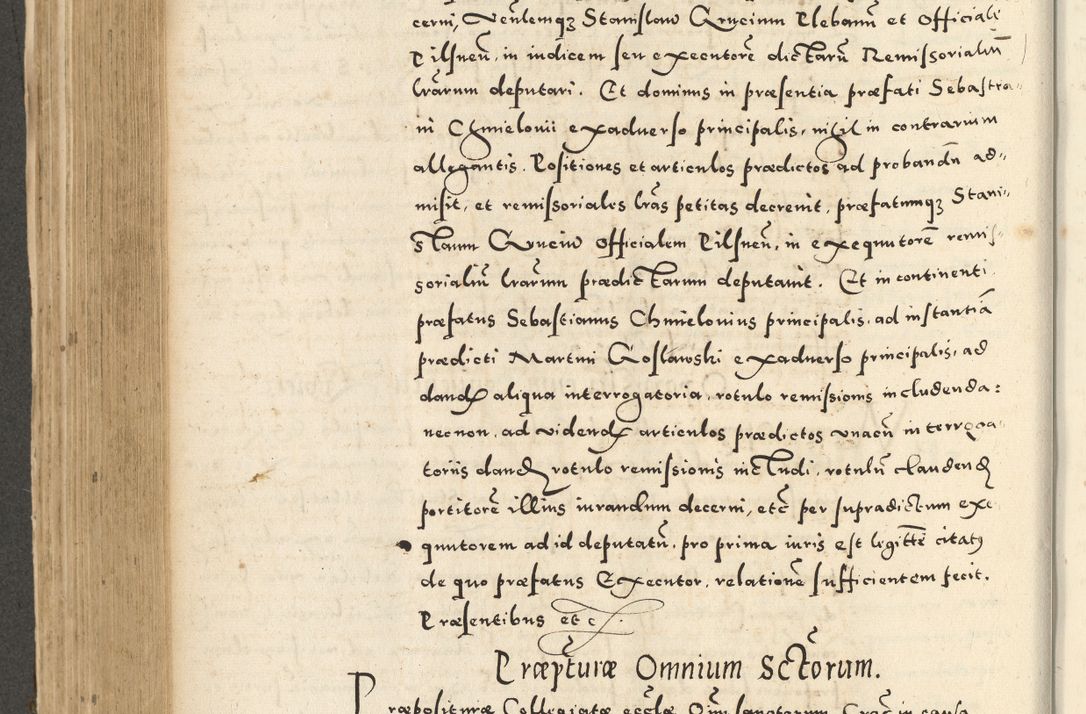 cerni, Venlemqȝ Stanislaw Grucium Plebanū et Officialē
Pilsneñ, in iudicem seu executorē dictarū Remissorialiū
lrārum deputari. Et dominus in præsentia præfati Sebastia„
ni Chmielouii ex aduerso principalis, nihil in contrarium
allegantis. Positiones et articulos prædictos ad probandū ad„
misit, et remissoriales lrās petitas decreuit, præfatumqȝ Stani„
slaum Gruciū Officialem Pilsneñ, in exequutorē remis„
sorialiū lrārum prædictarum deputauit. Et in continenti
præfatus Sebastianus Chmielouius principalis, ad instantiā
prædicti Martini Goslawski ex aduerso principalis, ad
dand aliqua interrogatoria, rotulo remissionis includenda:
necnon, ad videnđ articulos prædictos vnacū interroga
toriis danđ, rotulo remissionis includi, rotulū claudenđ
portitorē illius iurandum decerni, etc̄ per supradictum exe
quutorem ad id deputatū, pro prima iuris est legittē citatꝰ
de quo præfatus Executor, relationē sufficientem fecit.
Præsentibus etc.
Præpturæ Omnium Sctōrum.
Præposituræ Collegiatæ ecclæ Omī sanctorum Crac in causa